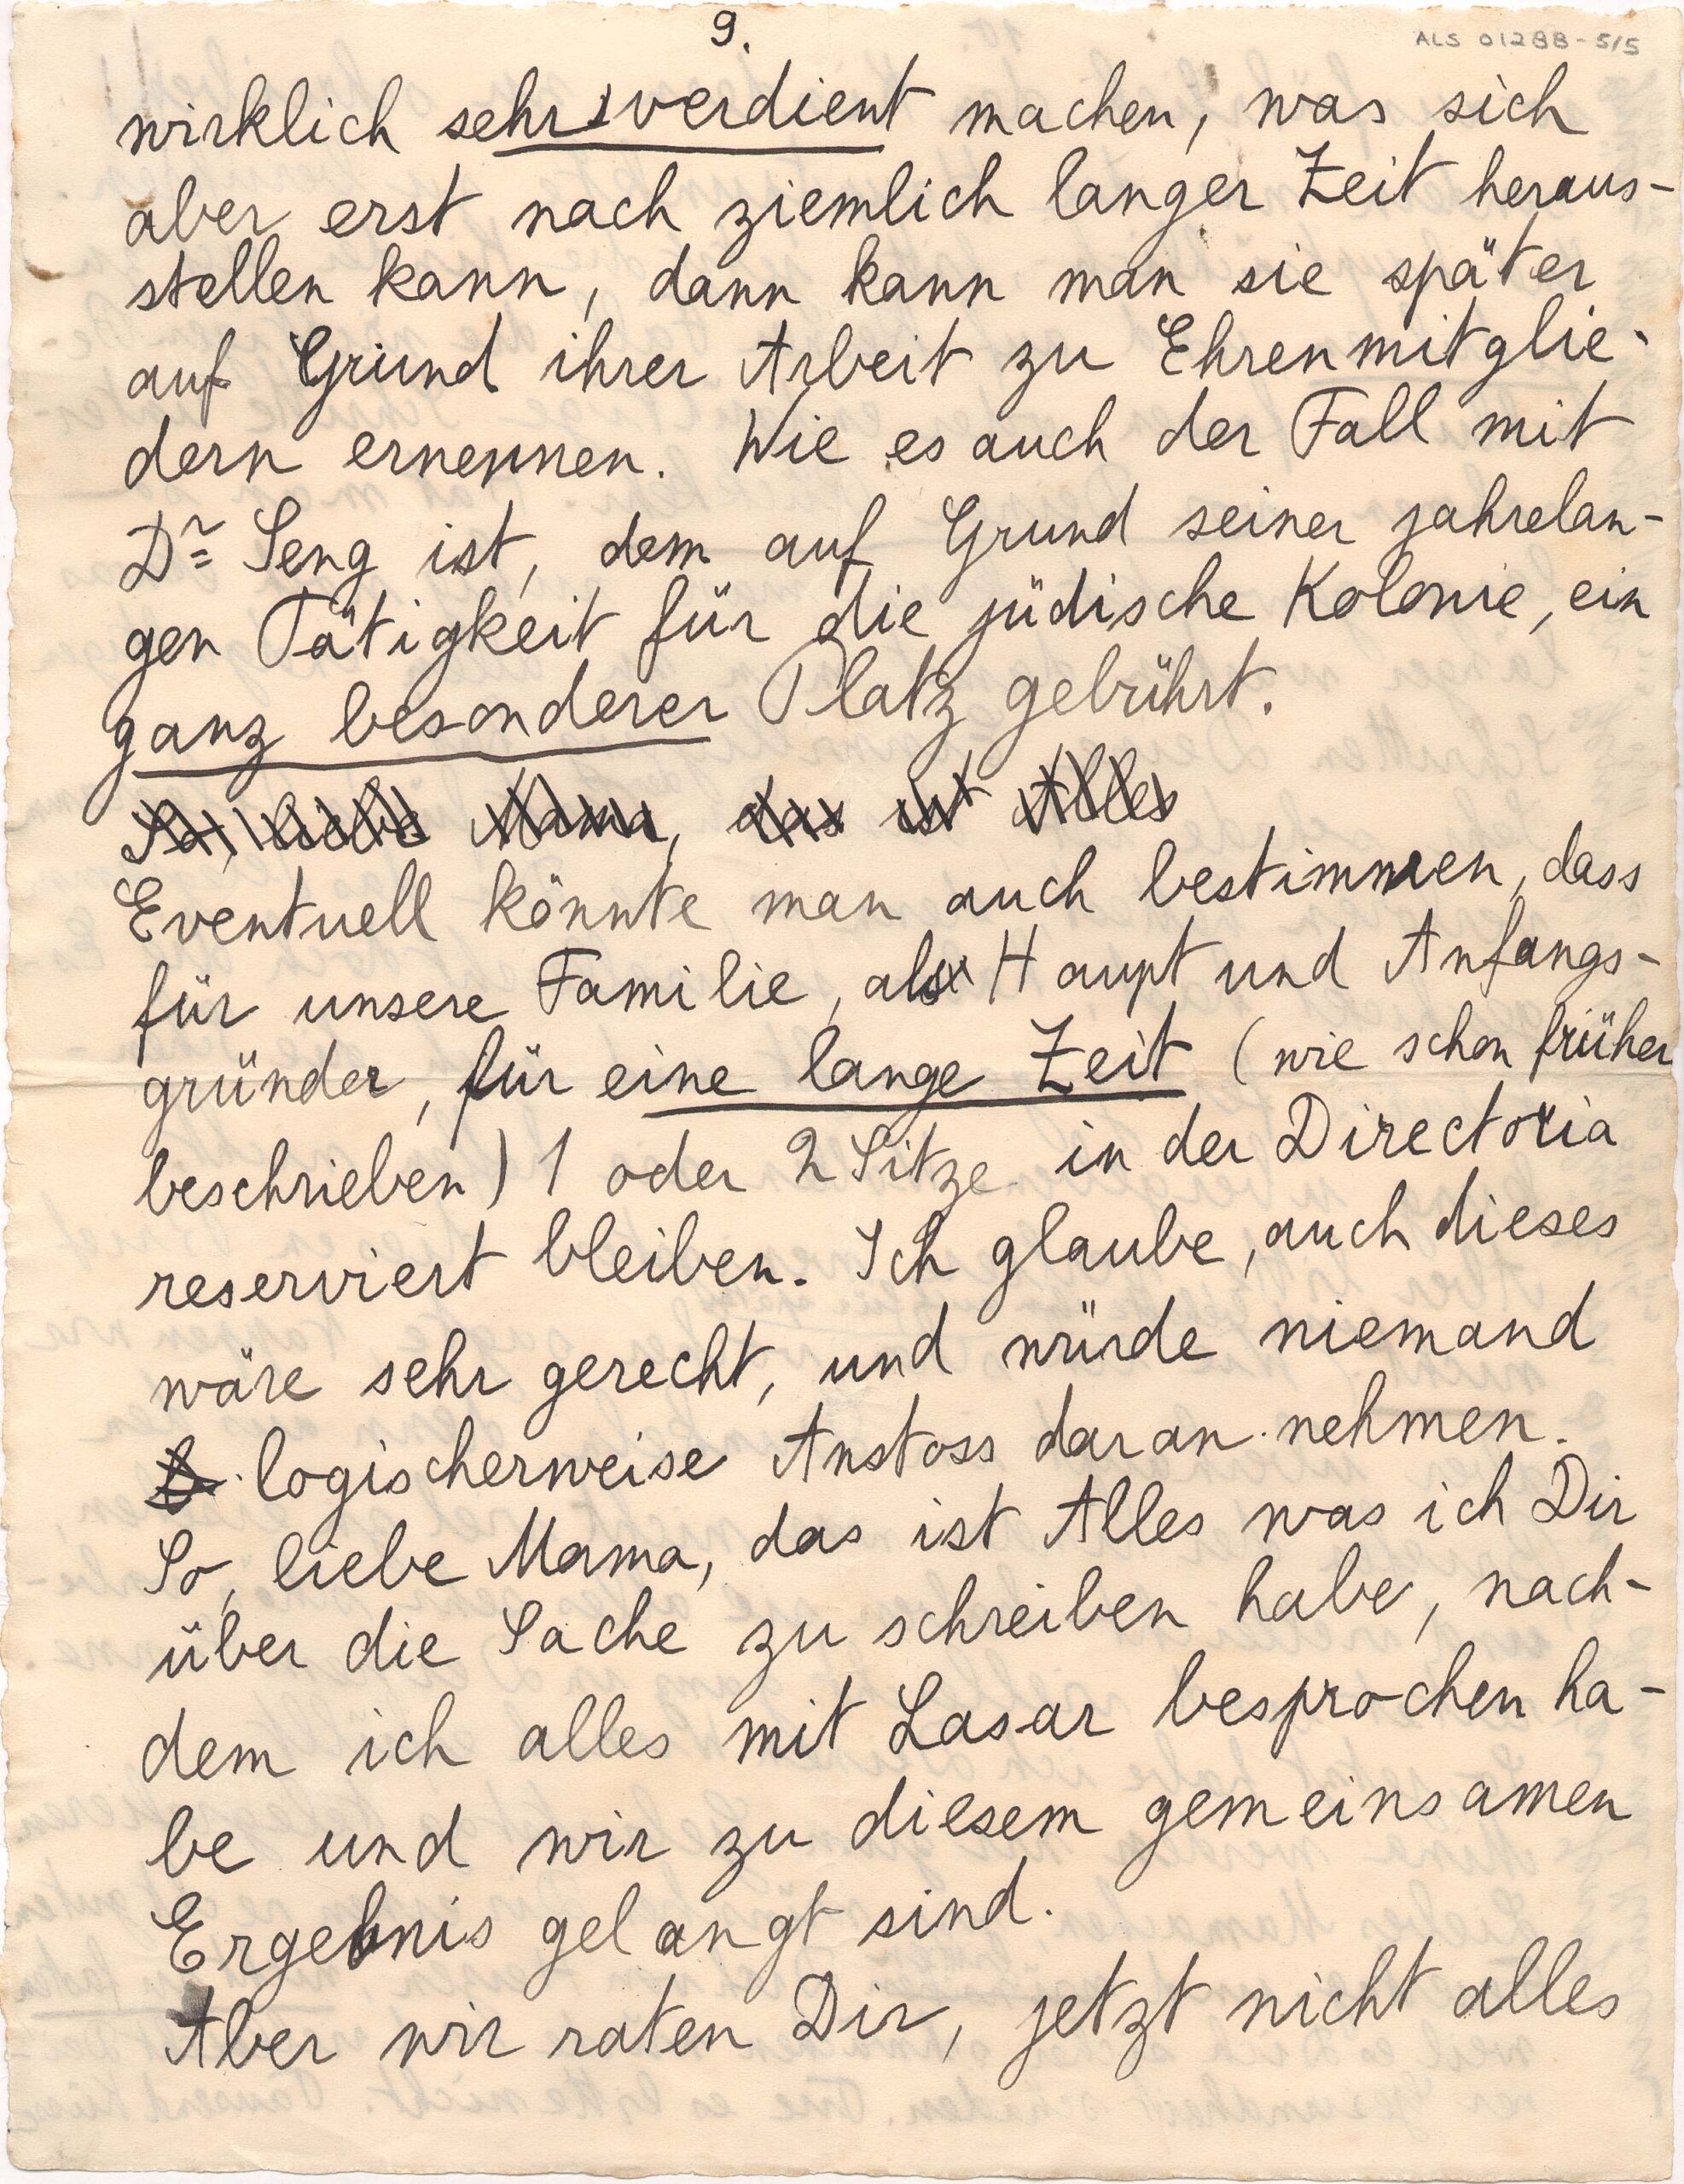 9.
ALS 01288-5/5
wirklich sehr verdient machen, was sich
aber erst nach ziemlich langer Zeit heraus-
stellen kann, dann kann man sie später
auf Grund ihrer Arbeit zu Ehrenmitglie-
dern ernennen. Wie es auch der Fall mit
Dr Seng ist, dem auf Grund seiner jahrelan-
gen Tätigkeit für die jüdische Kolonie, ein
ganz besonderer Platz gebührt.
So, liebe Mama, das ist Alles
Eventuell könnte man auch bestimmen, dass
für unsere Familie, als Haupt und Anfangs-
gründer, für eine lange Zeit (wie schon früher
beschrieben) 1 oder 2 Sitze in der Directoria
reserviert bleiben. Ich glaube, auch dieses
wäre sehr gerecht, und würde niemand
logischerweise Anstoss daran nehmen.
So, liebe Mama, das ist Alles was ich Dir
über die Sache zu schreiben habe, nach-
dem ich alles mit Lasar besprochen ha-
be und wir zu diesem gemeinsamen
Ergebnis gelangt sind.
Aber wir raten Dir, jetzt nicht alles